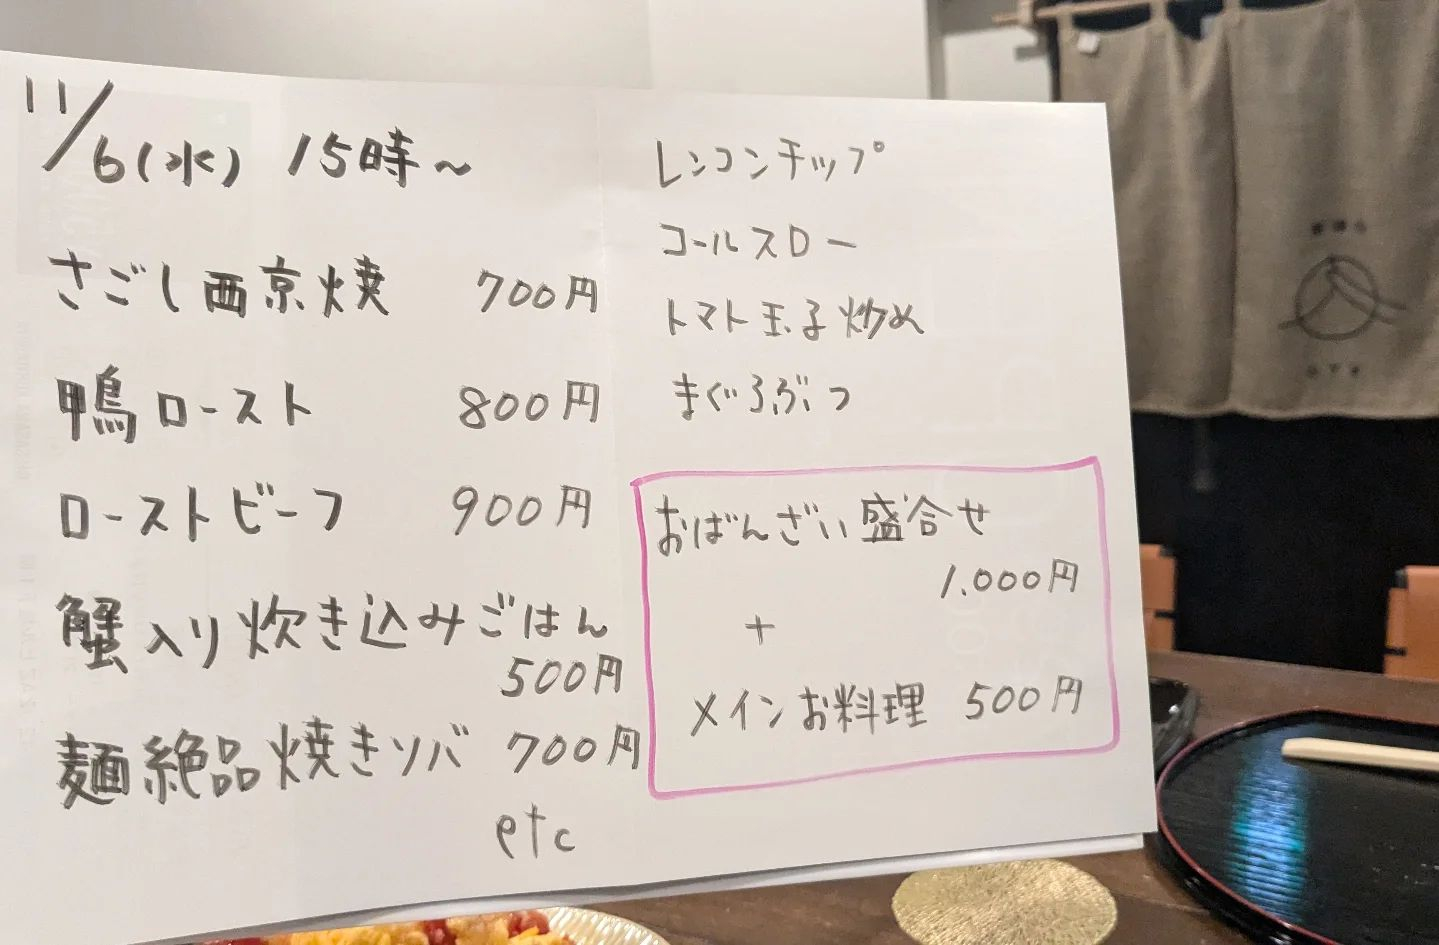 11/6(水) 15時~
さごし西京焼 700円
鴨ロースト 800円
ローストビーフ 900円
蟹入り炊き込みごはん
500円
麺絶品焼きソバ 700円
etc
レンコンチップ
コールスロー
トマト玉子炒め
まぐろぶつ
おばんざい盛合せ
1.000円
+
メインお料理 500円